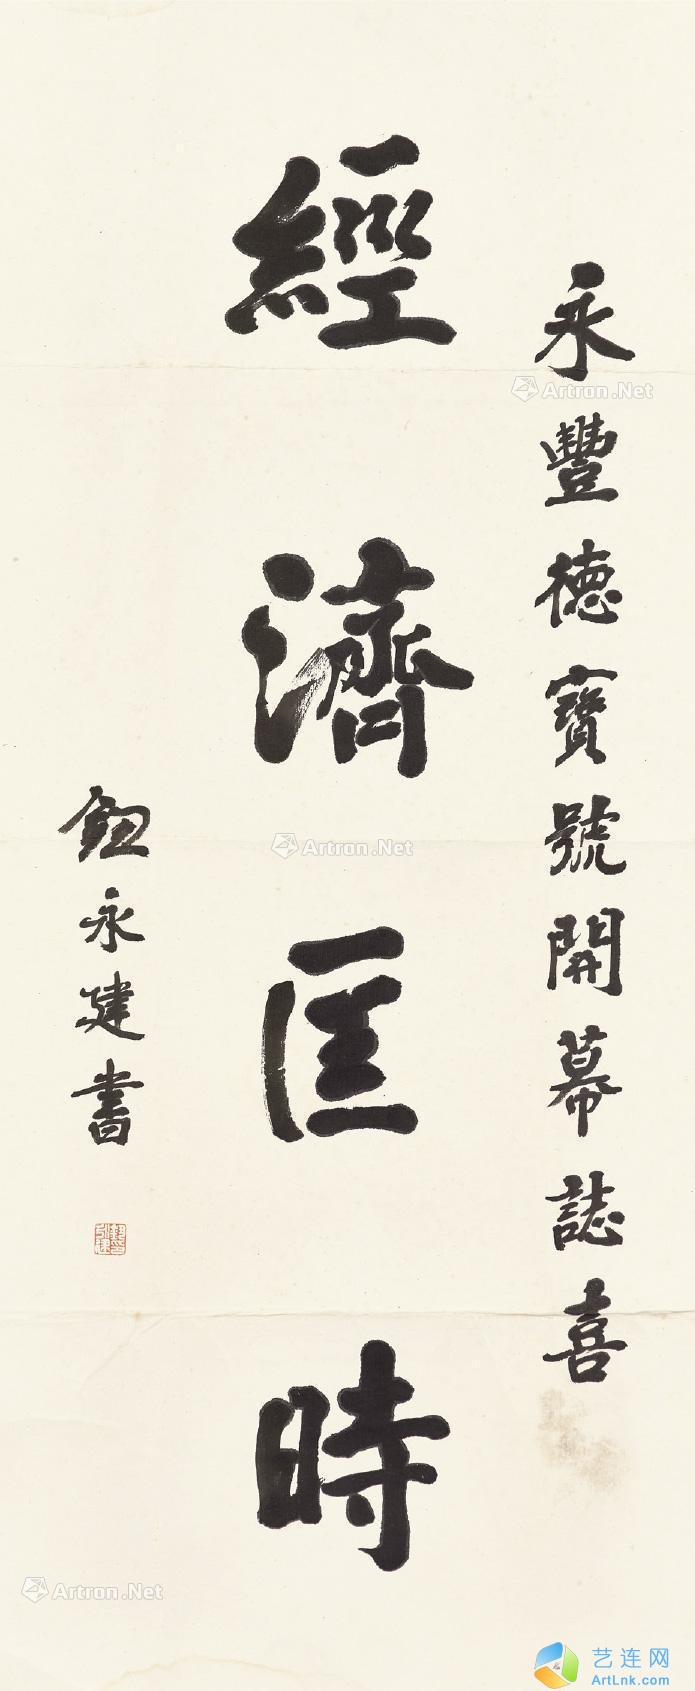 永豐德寶號開幕誌喜
經濟匡時
鈕永建書
Artron.Net
Artron.Net
Artron.Net
艺连网
ArtLnk.com